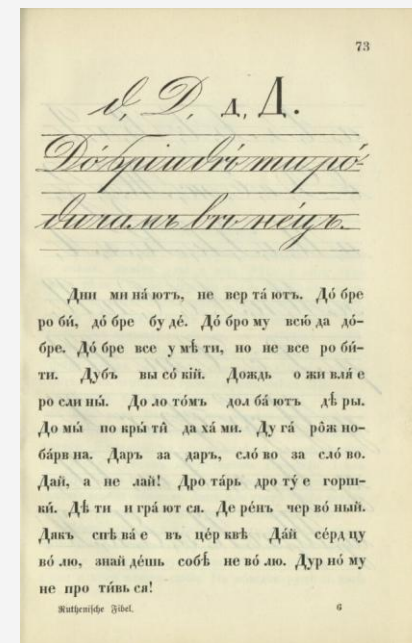 73
д, Д, д, Д.
До́бріи дѣ́ти ро́-
дичамъ вѣне́цъ.
Дни ми на́ ютъ, не вер та́ ютъ. До́ бре
ро би́, до́ бре бу де́. До́ бро му всю́ да до́-
бре. До́ бре все у мѣ́ ти, но не все ро би́-
ти. Дубъ вы со́ кій. Дождь о жи вля́ е
ро сли ны́. До ло то́мъ дол ба́ ютъ дѣ́ ры.
До мы́ по кры́ ти́ да ха́ ми. Ду га́ ро̂ж но-
ба́рв на. Даръ за даръ, сло́ во за сло́ во.
Дай, а не лай! Дро та́рь дро ту́ е горш-
ки́. Дѣ́ ти и гра́ ют ся. Де ре́нъ чер во́ ный.
Дякъ спѣ ва́ е въ це́р квѣ Да́й се́рд цу
во́ лю, знай де́шь собѣ́ не во́ лю. Дур но́ му
не про ти́вь ся!
Ruthenische Fibel.
6